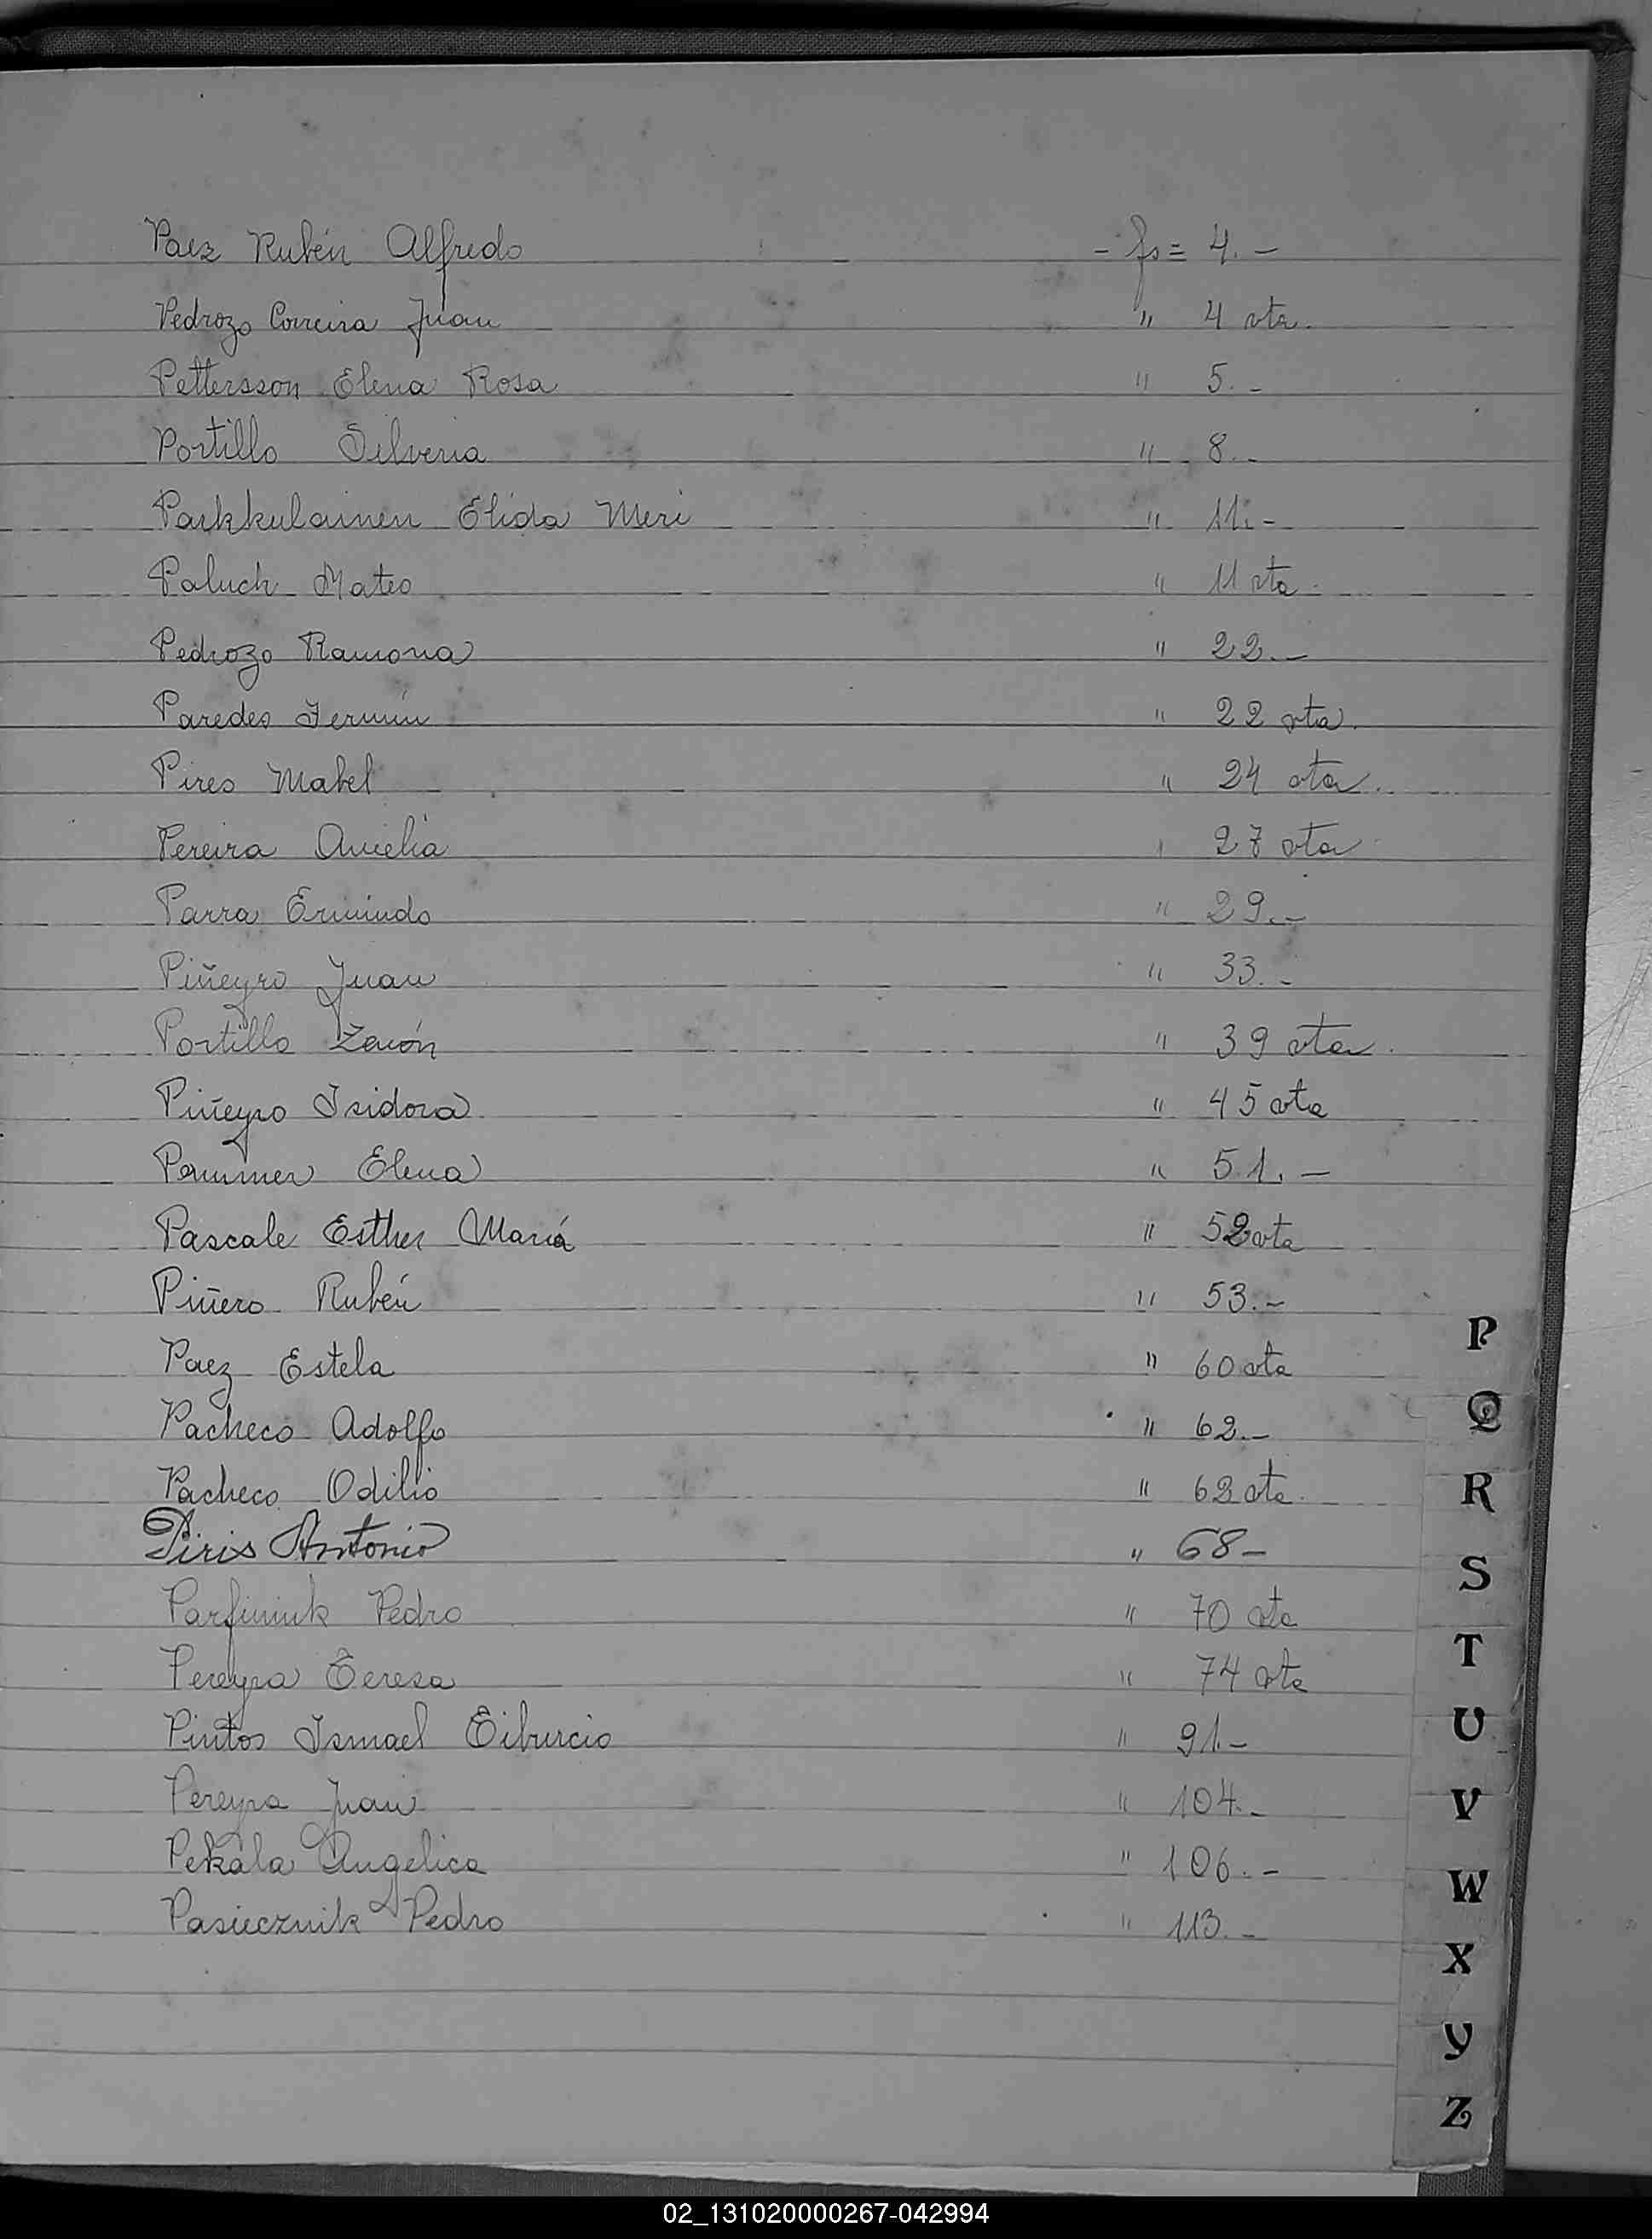 Paez Rubén Alfredo - fs= 4.-
Pedrozo Correira Juan " 4 vta.
Pettersson Elena Rosa " 5.-
Portillo Silveria " 8.-
Parkkulainen Elida Meri " 11.-
Paluch Mateo " 11 vta.
Pedrozo Ramona " 22.-
Paredes Fermín " 22 vta.
Pires Mabel " 24 vta.
Pereira Amelia " 27 vta
Parra Ermindo " 29.-
Piñeyro Juan " 33.-
Portillo " 39 vta.
Piñeyro Isidora " 45 vta
Elena " 51.-
Pascale Esther María " 52 vta
Piñero Rubén " 53.-
Paez Estela " 60 vta
Pacheco Adolfo " 62.-
Pacheco Odilio " 62 vta.
Piris Antonio " 68-
Parfiniuk Pedro " 70 vta
Pereyra Teresa " 74 vta
Pintos Ismael Tiburcio " 91.-
Pereyra Juan " 104.-
Pekala Angelica " 106.-
Pasiecznik Pedro " 113.-
P
Q
R
S
T
U
V
W
X
Y
Z
02_131020000267-042994